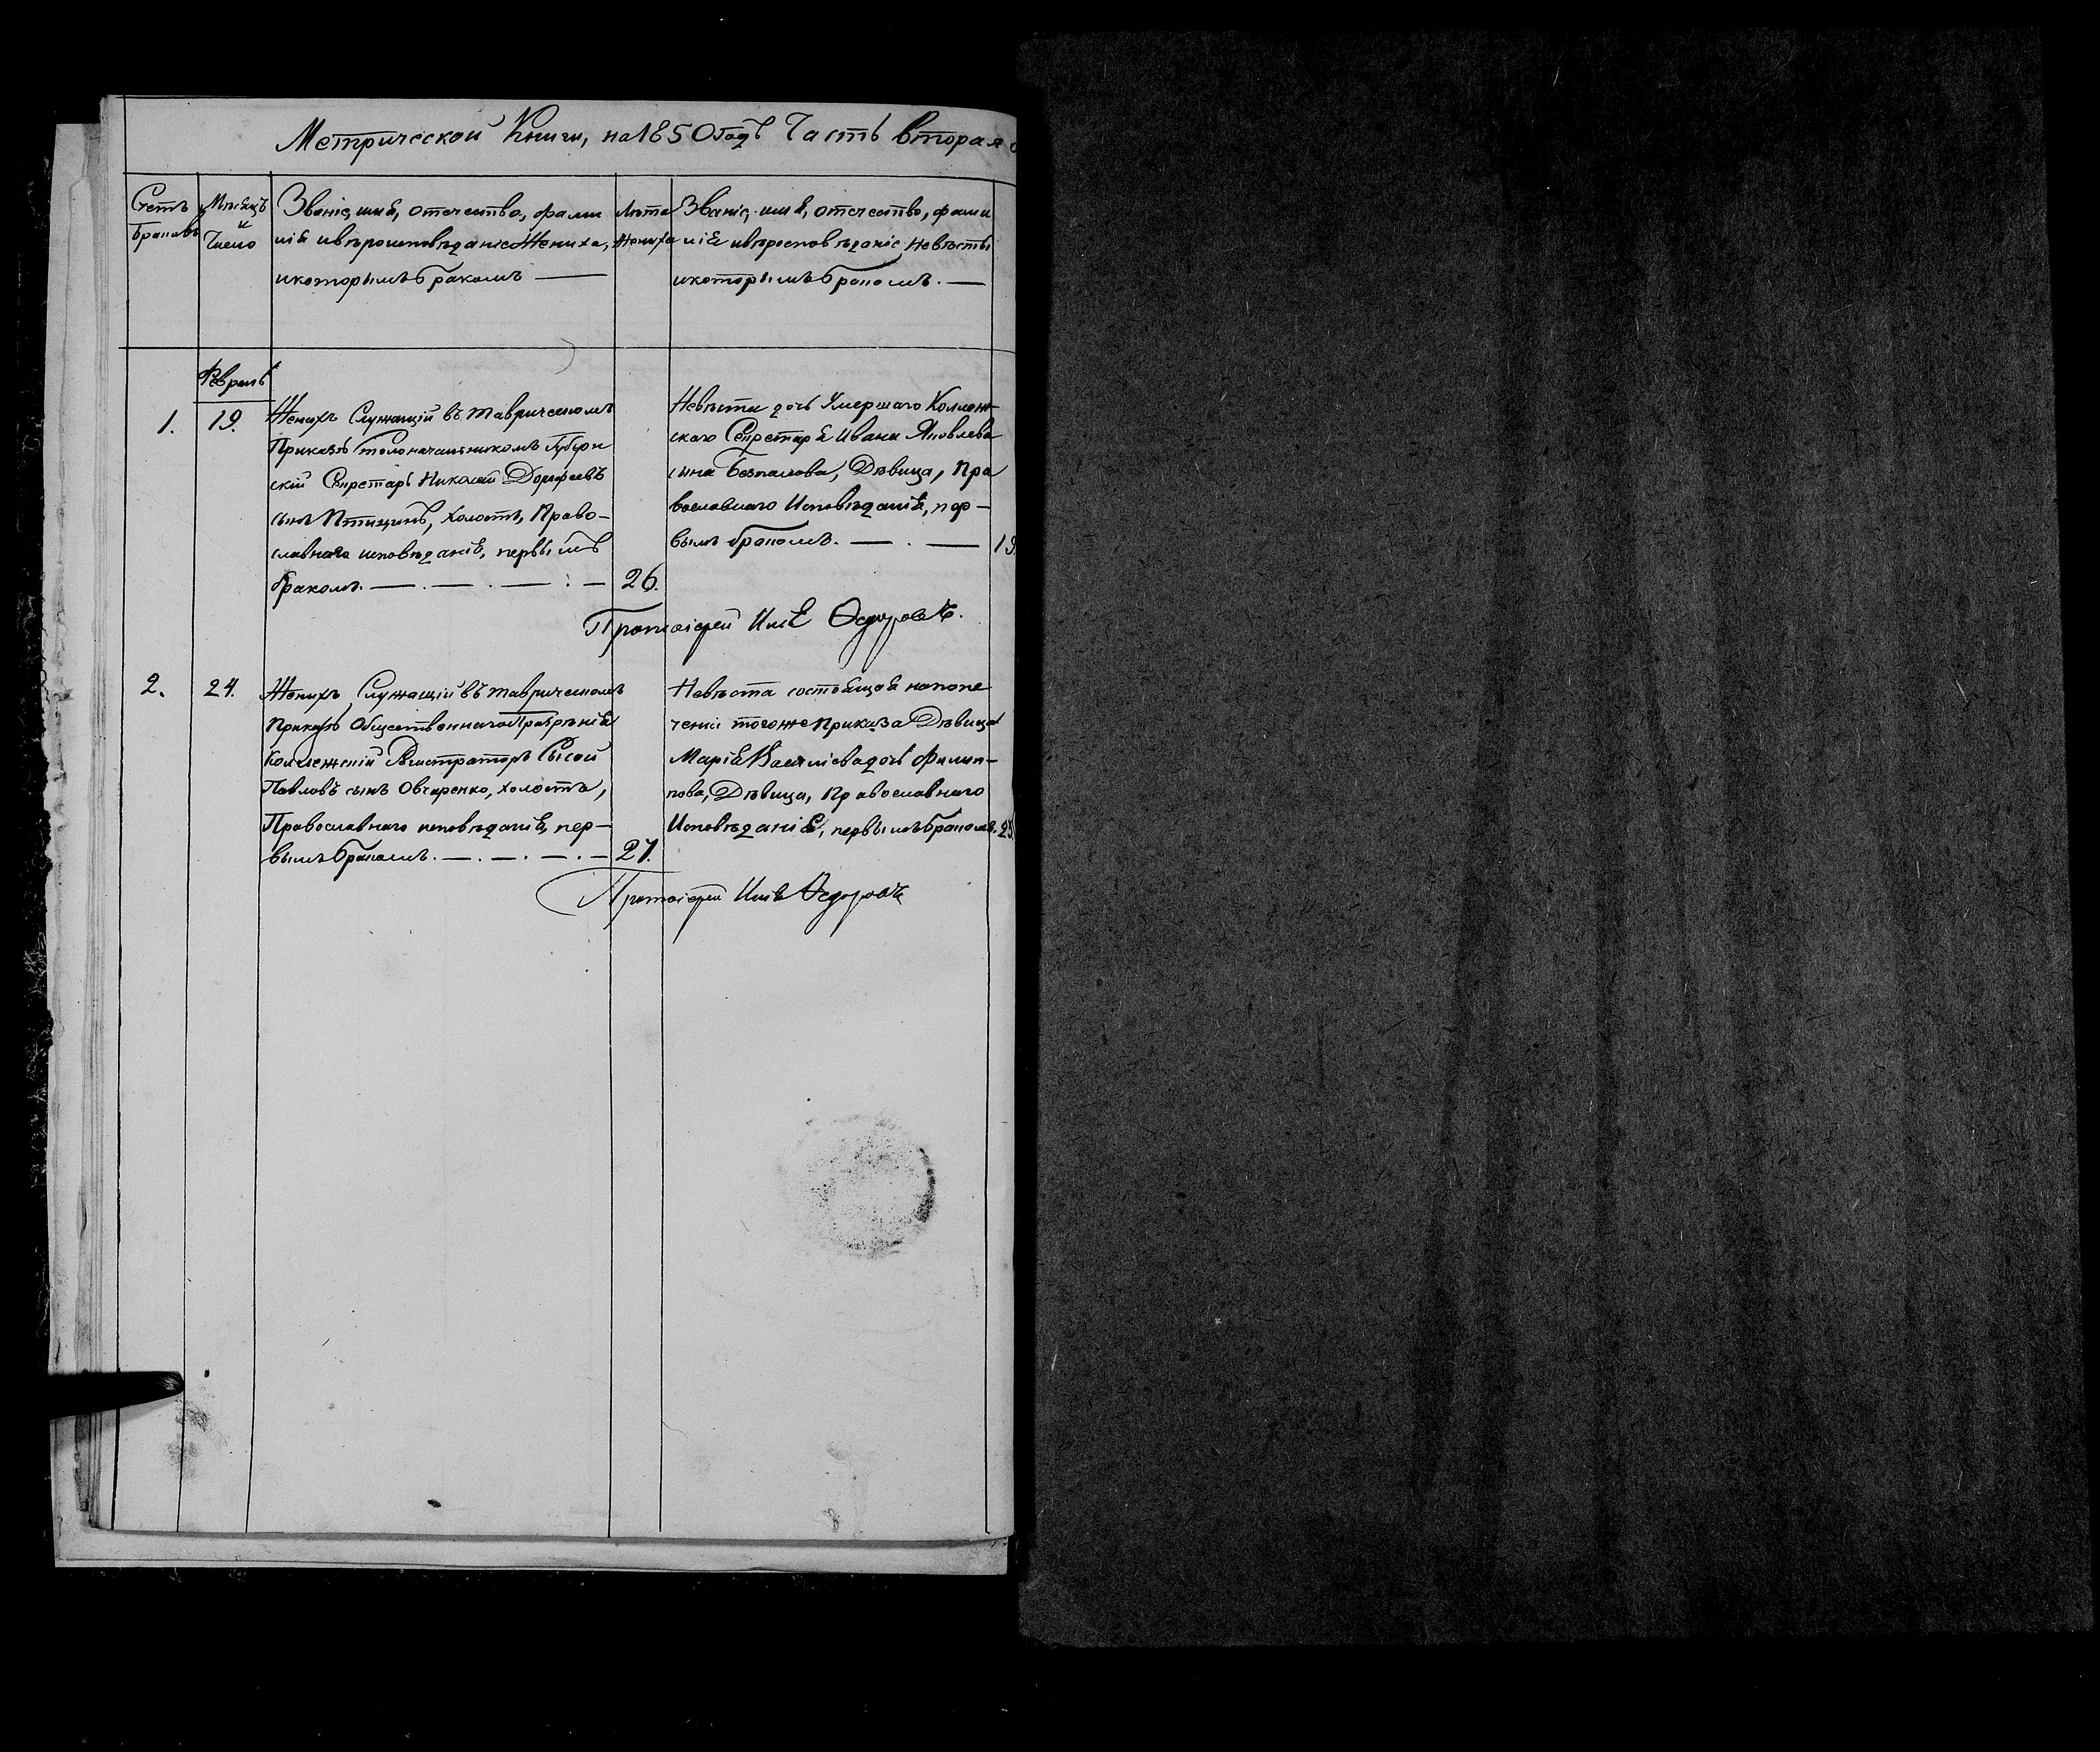 Метрической Книги, на 1850 годъ Часть вторая
Счетъ
браковъ
Мѣсяцъ
и
Число
Званіе, имя, отечество, фами
лія и вѣроисповѣданіе Жениха,
и которымъ бракомъ —
Лѣта
Жениха
Званіе, имя, отечество, фами
лія и вѣроисповѣданіе Невѣсты
и которымъ бракомъ. —
Февраль
1.
19.
Женихъ Служащій въ Таврическомъ
Приказѣ Столоначальникомъ Губерн
скій Секретарь Николай Дорофеевъ
сынъ Птицынъ, холостъ, Право-
славнаго исповѣданія, первымъ
бракомъ. — . — . — : —
26.
Невѣста дочь Умершаго Коллеж-
скаго Секретаря Ивана Яковлева
сына Безпалова, Дѣвица, Пра
вославнаго Исповѣданія, пер-
вымъ бракомъ. — . —
19.
Протоіерей Илія Ѳедоровъ.
2.
24.
Женихъ Служащій въ Таврическомъ
Приказѣ Общественнаго Призрѣнія
Коллежскій Регистраторъ Сысой
Павловъ сынъ Овчаренко, холостъ,
Православнаго исповѣданія, пер-
вымъ бракомъ. — . — . — . —
27.
Невѣста состоящая на попе
ченіи того же Приказа Дѣвица
Марія Васильева дочь Филип-
пова, Дѣвица, Православнаго
Исповѣданія, первымъ бракомъ.
Протоіерей Илія Ѳедоровъ